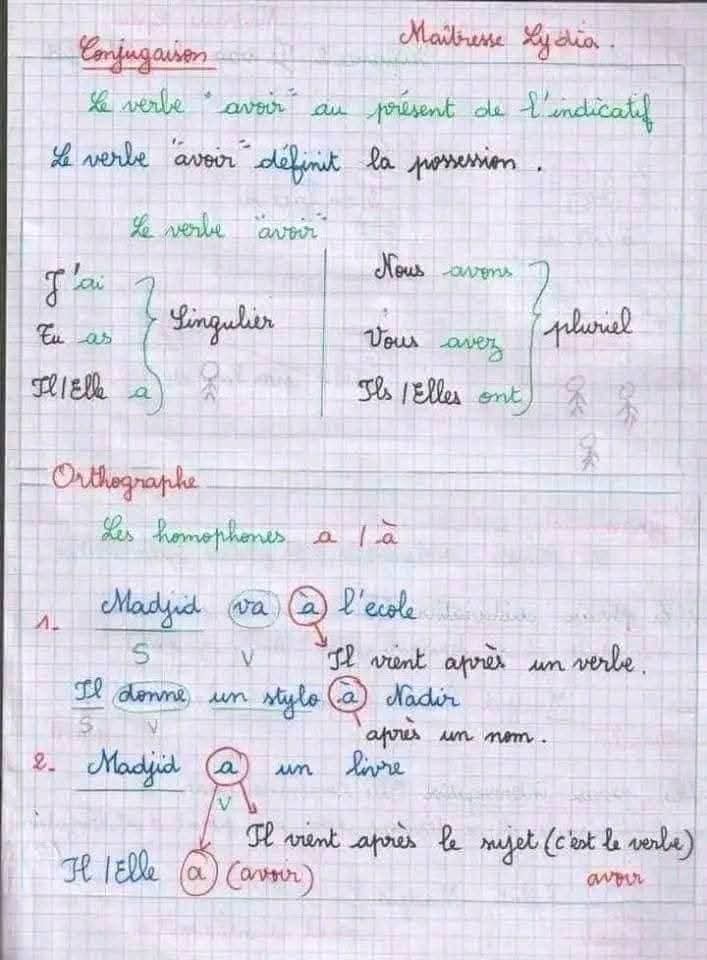 Maîtresse Lydia.
Conjugaison
Le verbe "avoir" au présent de l'indicatif
Le verbe "avoir" définit la possession.
Le verbe "avoir"
J'ai
Tu as
Il/Elle a
Singulier
Nous avons
Vous avez
Ils/Elles ont
pluriel
Orthographe
Les homophones a / à
1- Madjid va à l'école
S V Il vient après un verbe.
Il donne un stylo à Nadir
S V après un nom.
2- Madjid a un livre
V
Il vient après le sujet (c'est le verbe)
Il/Elle à (avoir) avoir